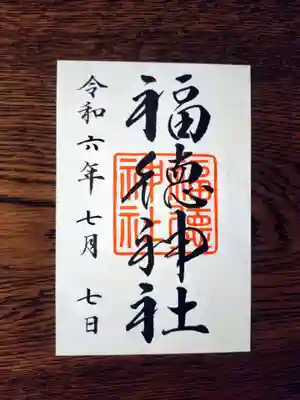 福徳神社
令和六年七月七日
福德
神社